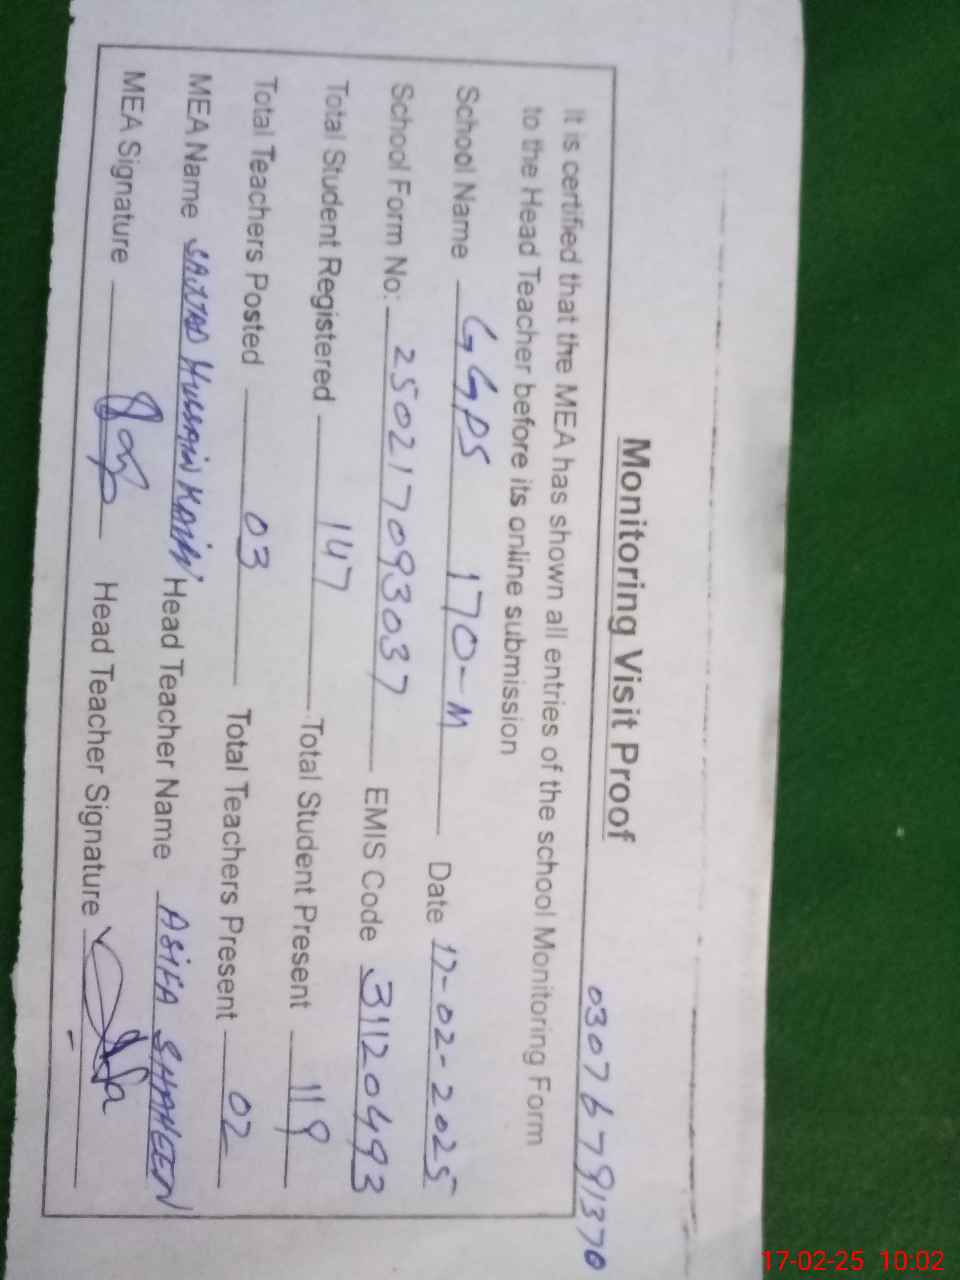 Monitoring Visit Proof
03076791370
It is certified that the MEA has shown all entries of the school Monitoring Form
to the Head Teacher before its online submission
School Name GGPS 170-M Date 17-02-2025
School Form No: 250217093037 EMIS Code 31120493
Total Student Registered 147 Total Student Present 119
Total Teachers Posted 03 Total Teachers Present 02
MEA Name SAJJAD HUSSAIN Head Teacher Name ASIFA SHAHEEN
MEA Signature Head Teacher Signature
17-02-25 10:02